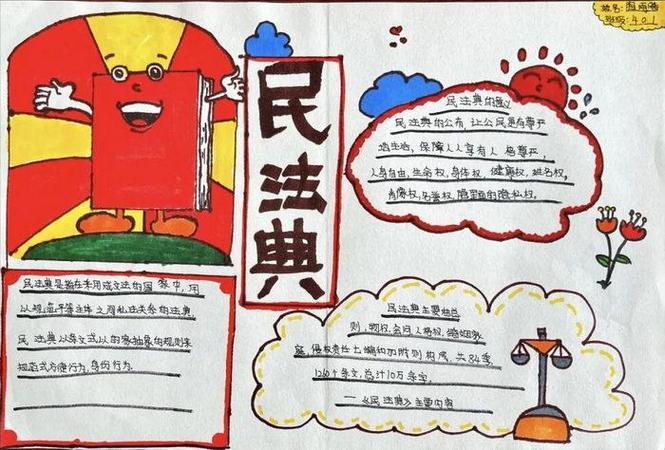 姓名:
班级:401
民法典
民法典的意义
民法典的公布,让公民更有尊严
的生活,保障人人享有人格尊严,
人身自由,生命权,身体权,健康权,姓名权,
肖像权,名誉权,隐私权。
民法典是指在采用成文法的国家中,用
以规范平等主体之间私法关系的法典,
民法典以条文式以的抽象的规则来
规范式方便行为,身份行为.
民法典主要由总
则,物权,合同,人格权,婚姻家
庭,侵权责任七编和加附则构成,共84章,
1260个条文,总计10万余字,
—《民法典》主要内容